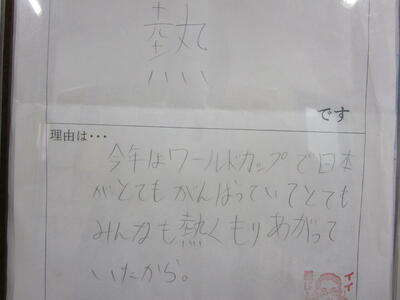 熱
です
理由は・・・
今年はワールドカップで日本
がとてもがんばっていてとても
みんなも熱くもりあがって
いたから。